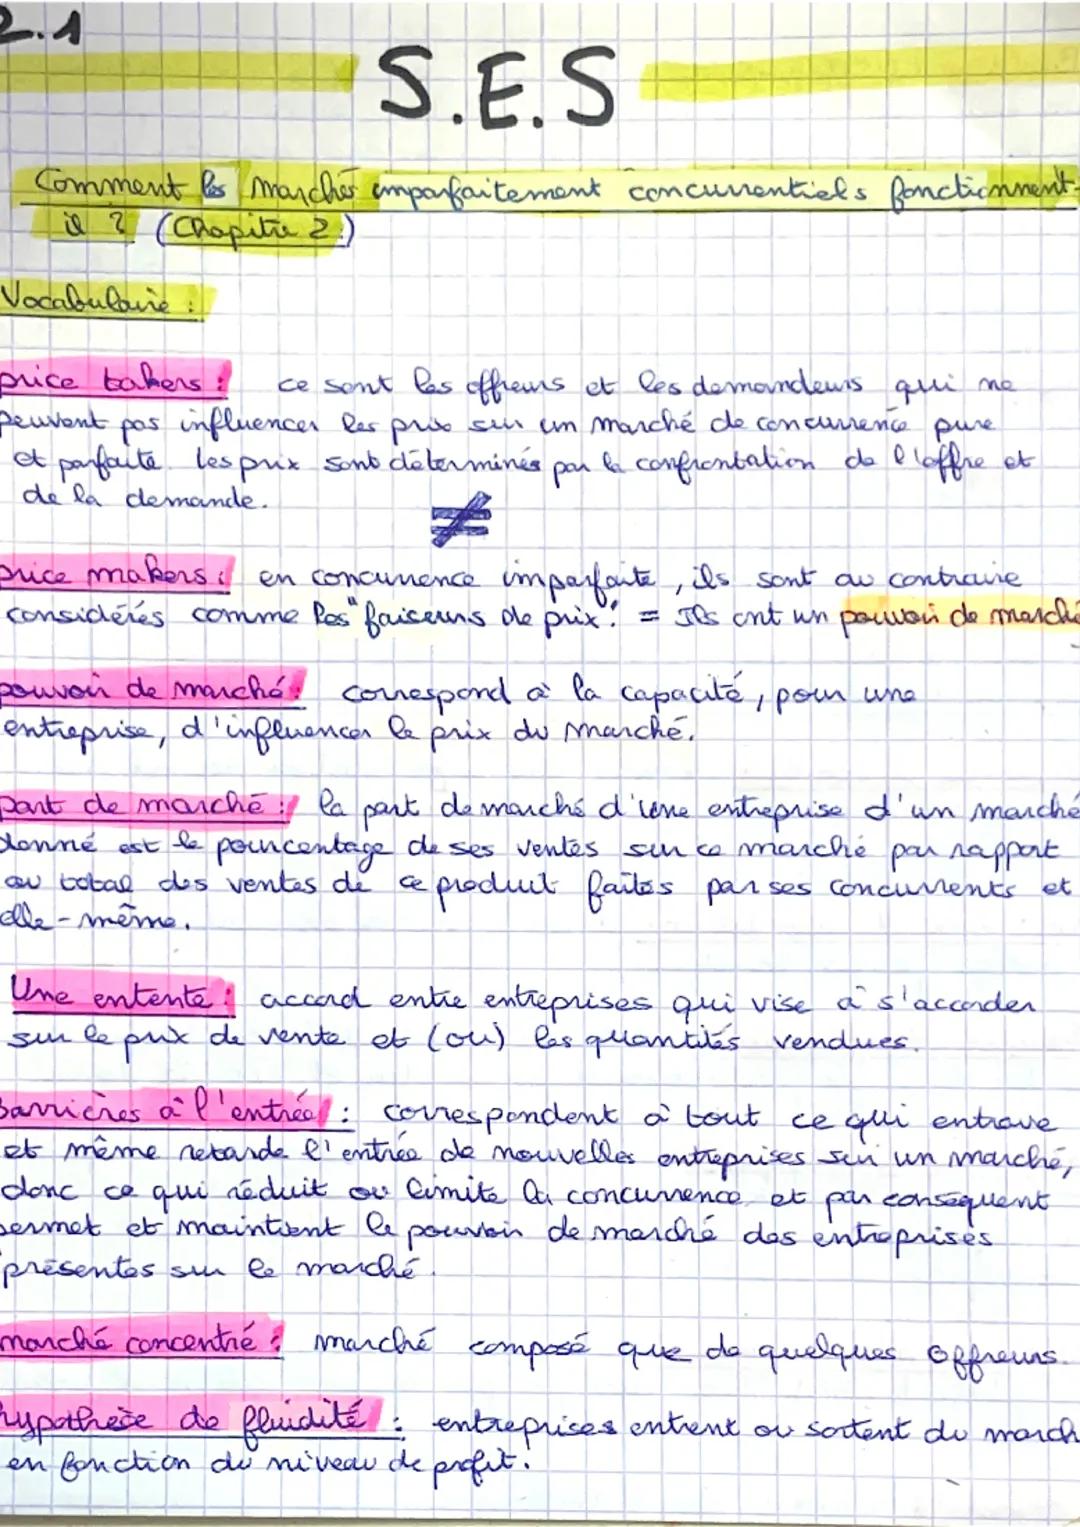 2.1
S.E.S
Comment les marchés imparfaitement concurrentiels fonctionnent-
il ? (Chapitre 2:)
Vocabulaire :
price takers : ce sont les offreurs et les demandeurs qui ne
peuvent pas influencer les prix sur un marché de concurrence pure
et parfaite. les prix sont déterminés par la confrontation de l'offre et
de la demande.
≠
price makers : en concurrence imparfaite, ils sont au contraire
considérés comme les "faiseurs de prix". = Ils ont un pouvoir de marché
pouvoir de marché : correspond à la capacité, pour une
entreprise, d'influencer le prix du marché.
part de marché : la part de marché d'une entreprise d'un marché
donné est le pourcentage de ses ventes sur ce marché par rapport
au total des ventes de ce produit faites par ses concurrents et
elle-même.
Une entente : accord entre entreprises qui vise à s'accorder
sur le prix de vente et (ou) les quantités vendues.
Barrières à l'entrée : correspondent à tout ce qui entrave
et même retarde l'entrée de nouvelles entreprises sur un marché,
donc ce qui réduit ou limite la concurrence et par conséquent
permet et maintient le pouvoir de marché des entreprises
présentes sur le marché.
marché concentré : marché composé que de quelques offreurs.
hypothèse de fluidité : entreprises entrent ou sortent du march
en fonction du niveau de profit.